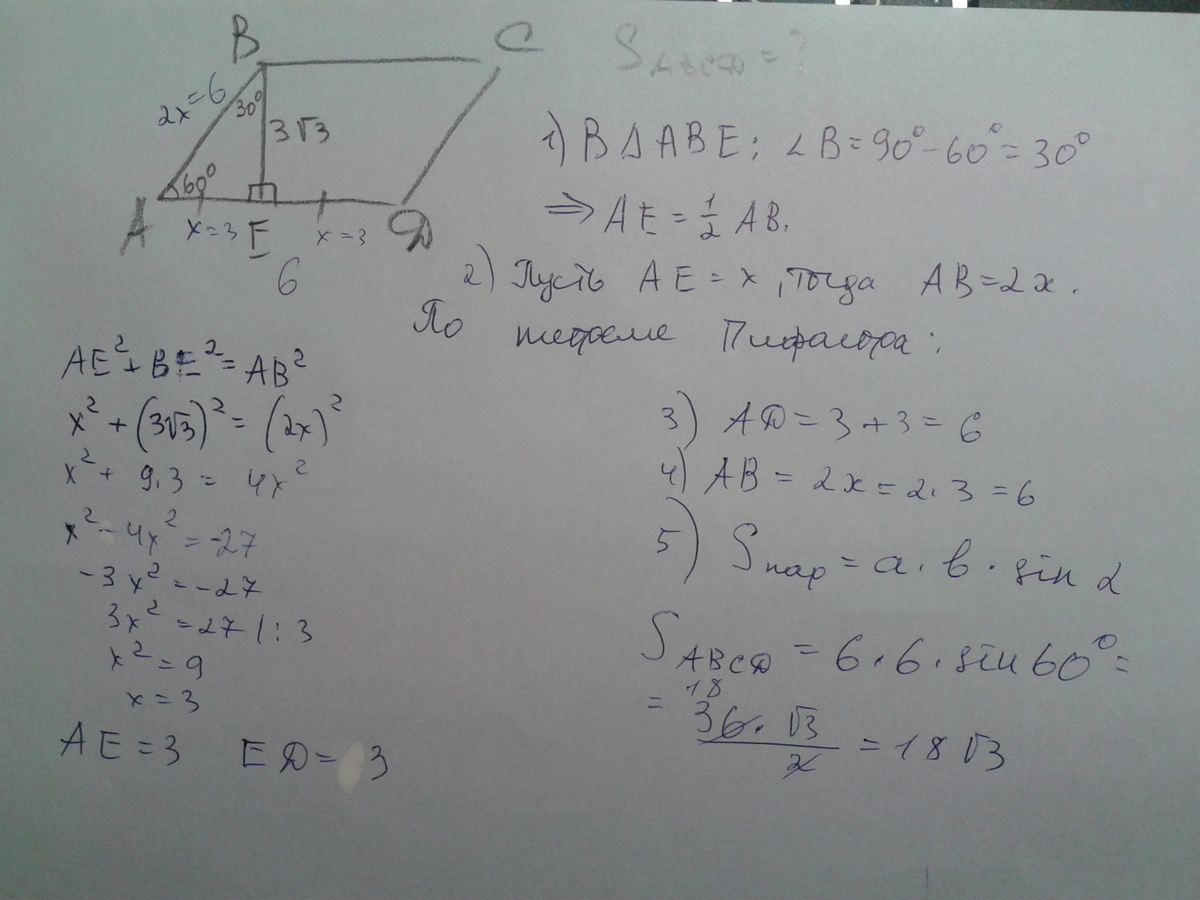 B
C
S ABCD = ?
2x=6
30°
3√3
60°
A
x=3
E
x=3
D
6
1) В Δ ABE; ∠B = 90° - 60° = 30°
⇒ AE = 1/2 AB.
2) Пусть AE = x, тогда AB = 2x.
По теореме Пифагора:
AE² + BE² = AB²
x² + (3√3)² = (2x)²
x² + 9·3 = 4x²
x² - 4x² = -27
-3x² = -27
3x² = 27 | : 3
x² = 9
x = 3
AE = 3 ED = 3
3) AD = 3 + 3 = 6
4) AB = 2x = 2·3 = 6
5) Sпар = a · b · sin α
S ABCD = 6 · 6 · sin 60° =
18
= 36 · √3 / 2 = 18√3